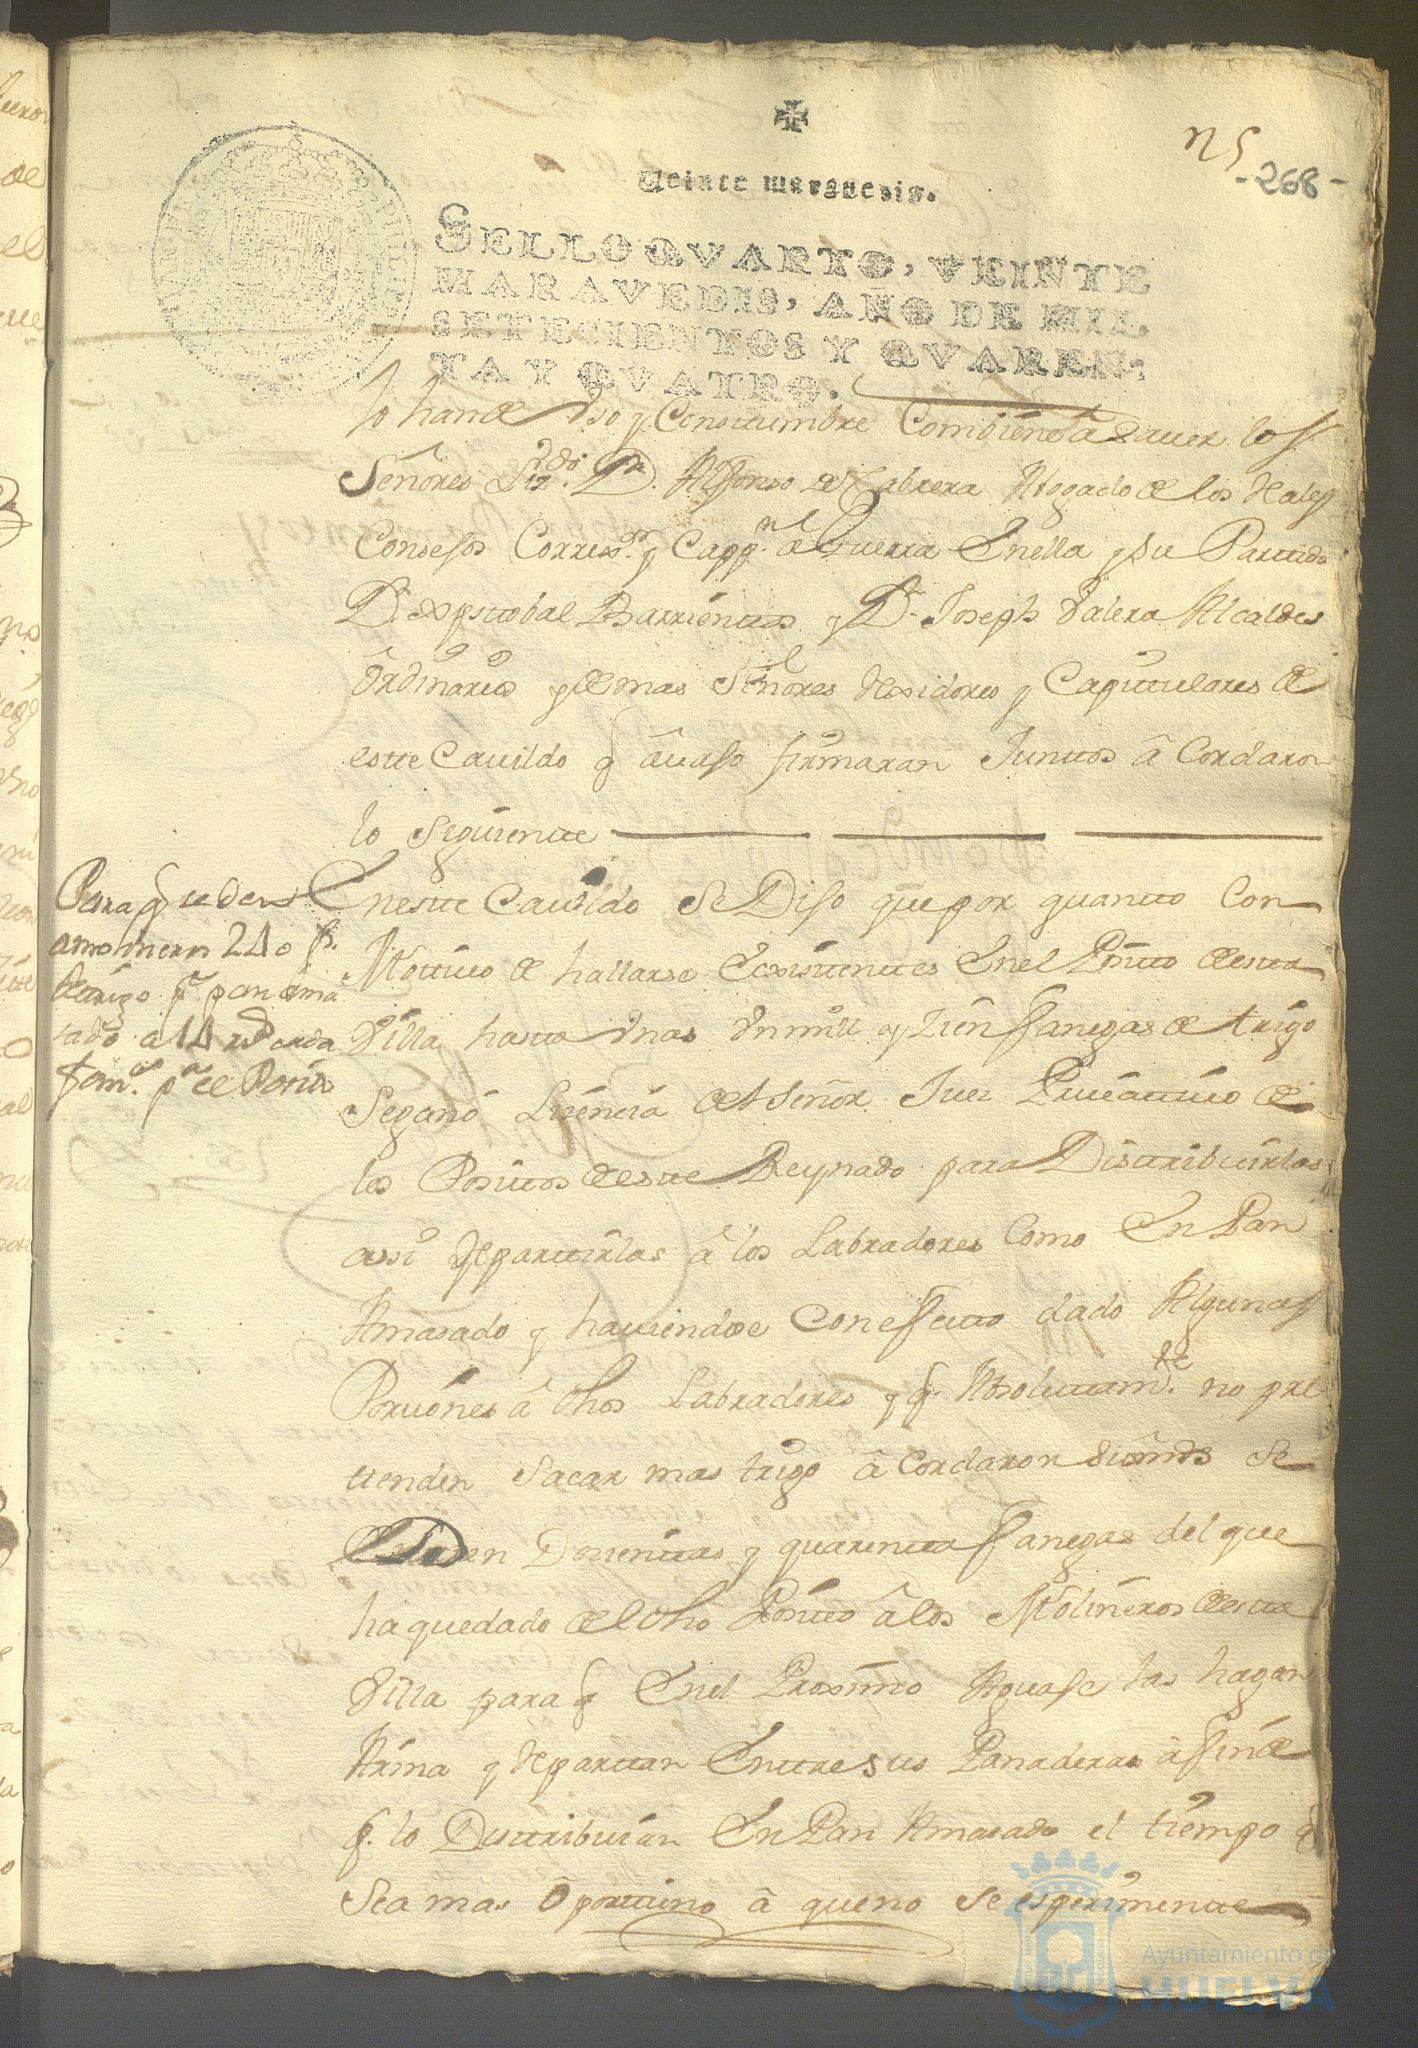 Veinte maravedis.
SELLO QVARTO, VEINTE
MARAVEDIS, AÑO DE MIL
SETECIENTOS Y QVAREN-
TA Y QVATRO.
-268-
lo han de vso y Constumbre Combiene a saver los
Señores Lizdo. Dn. Alfonso de Cabrera Abogado de los Rales
Consejos Correxor. y Cappn. a Guerra Enella y su Partido
Dn. Xpstobal Barrientos y Dn. Joseph Valera Alcaldes
ordinarios y demas Señores Rexidores y Capitulares de
este Cavildo q avaso firmaran Juntos â Cordaron
lo siguiente
Para q se den
240 fs.
de trigo pa. pan ama
sado a 14 rs. cada
fanega pa. el Posito
Eneste Cavildo Se Diso que por quanto Con
Motivo de hallarse Existentes Enel Posito de esta
Villa hasta Vnas Vn mill y Zien fanegas de trigo
Se ganó Lizencia del señor Juez Privativo de
los Positos de este Reynado para Distribuirlas
assi Repartirlas â los Labradores Como En Pan
Amasado y haviendose Con effecto dado Algunas
Porziones â dhos Labradores y q. Absolutamte. no pre
tenden sacar mas trigo â Cordaron sus mds Se
Dozientas y quarenta fanegas del que
ha quedado del dho Posito âlos Molineros de esta
Villa para q Enel Proximo Aguase las hagan
Arina y Repartan Entre sus Panaderas â fin de
q. lo Distribuian En Pan Amasado el tiempo q
Sea mas Oportuno â que no se esperimente
Ayuntamiento de
HUELVA